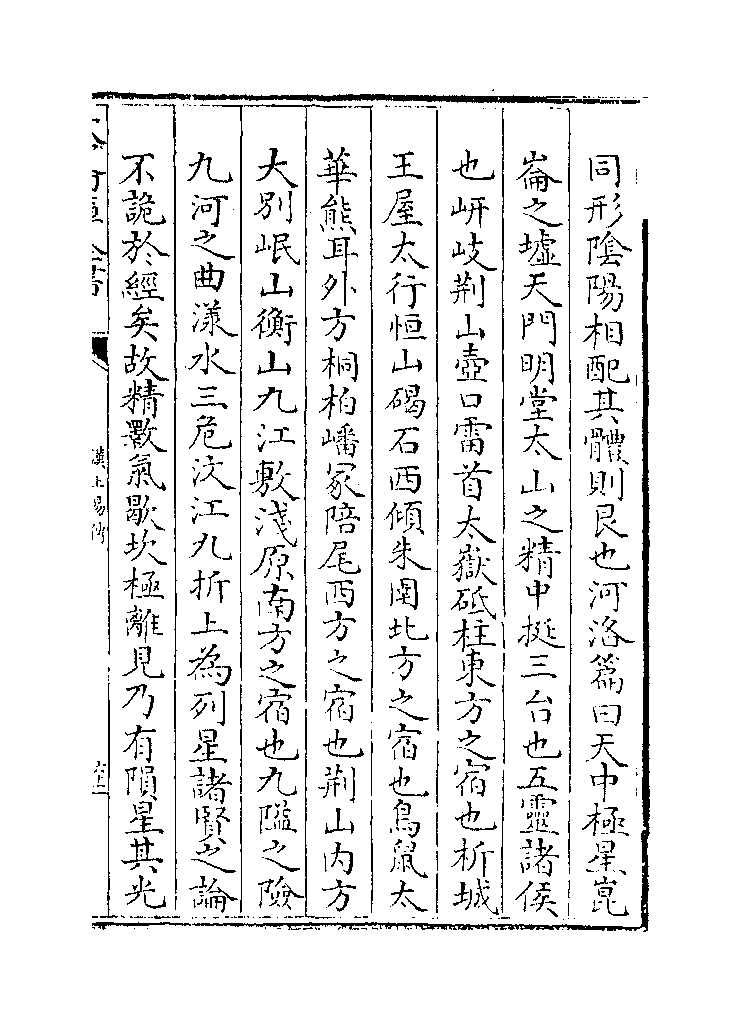 同形陰陽相配其體則艮也河洛篇曰天中極星崑
崙之墟天門明堂太山之精中挺三台也五靈諸侯
也岍岐荆山壺口雷首太嶽砥柱東方之宿也析城
王屋太行恒山碣石西傾朱圉北方之宿也鳥鼠太
華熊耳外方桐柏嶓冢陪尾西方之宿也荆山内方
大别岷山衡山九江敷淺原南方之宿也九隘之險
九河之曲瀁水三危汶江九折上為列星諸賢之論
不詭於經矣故精斁氣歇坎極離見乃有隕星其光
漢上易傳